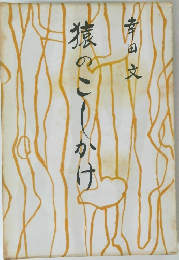 幸田文
猿のこしかけ